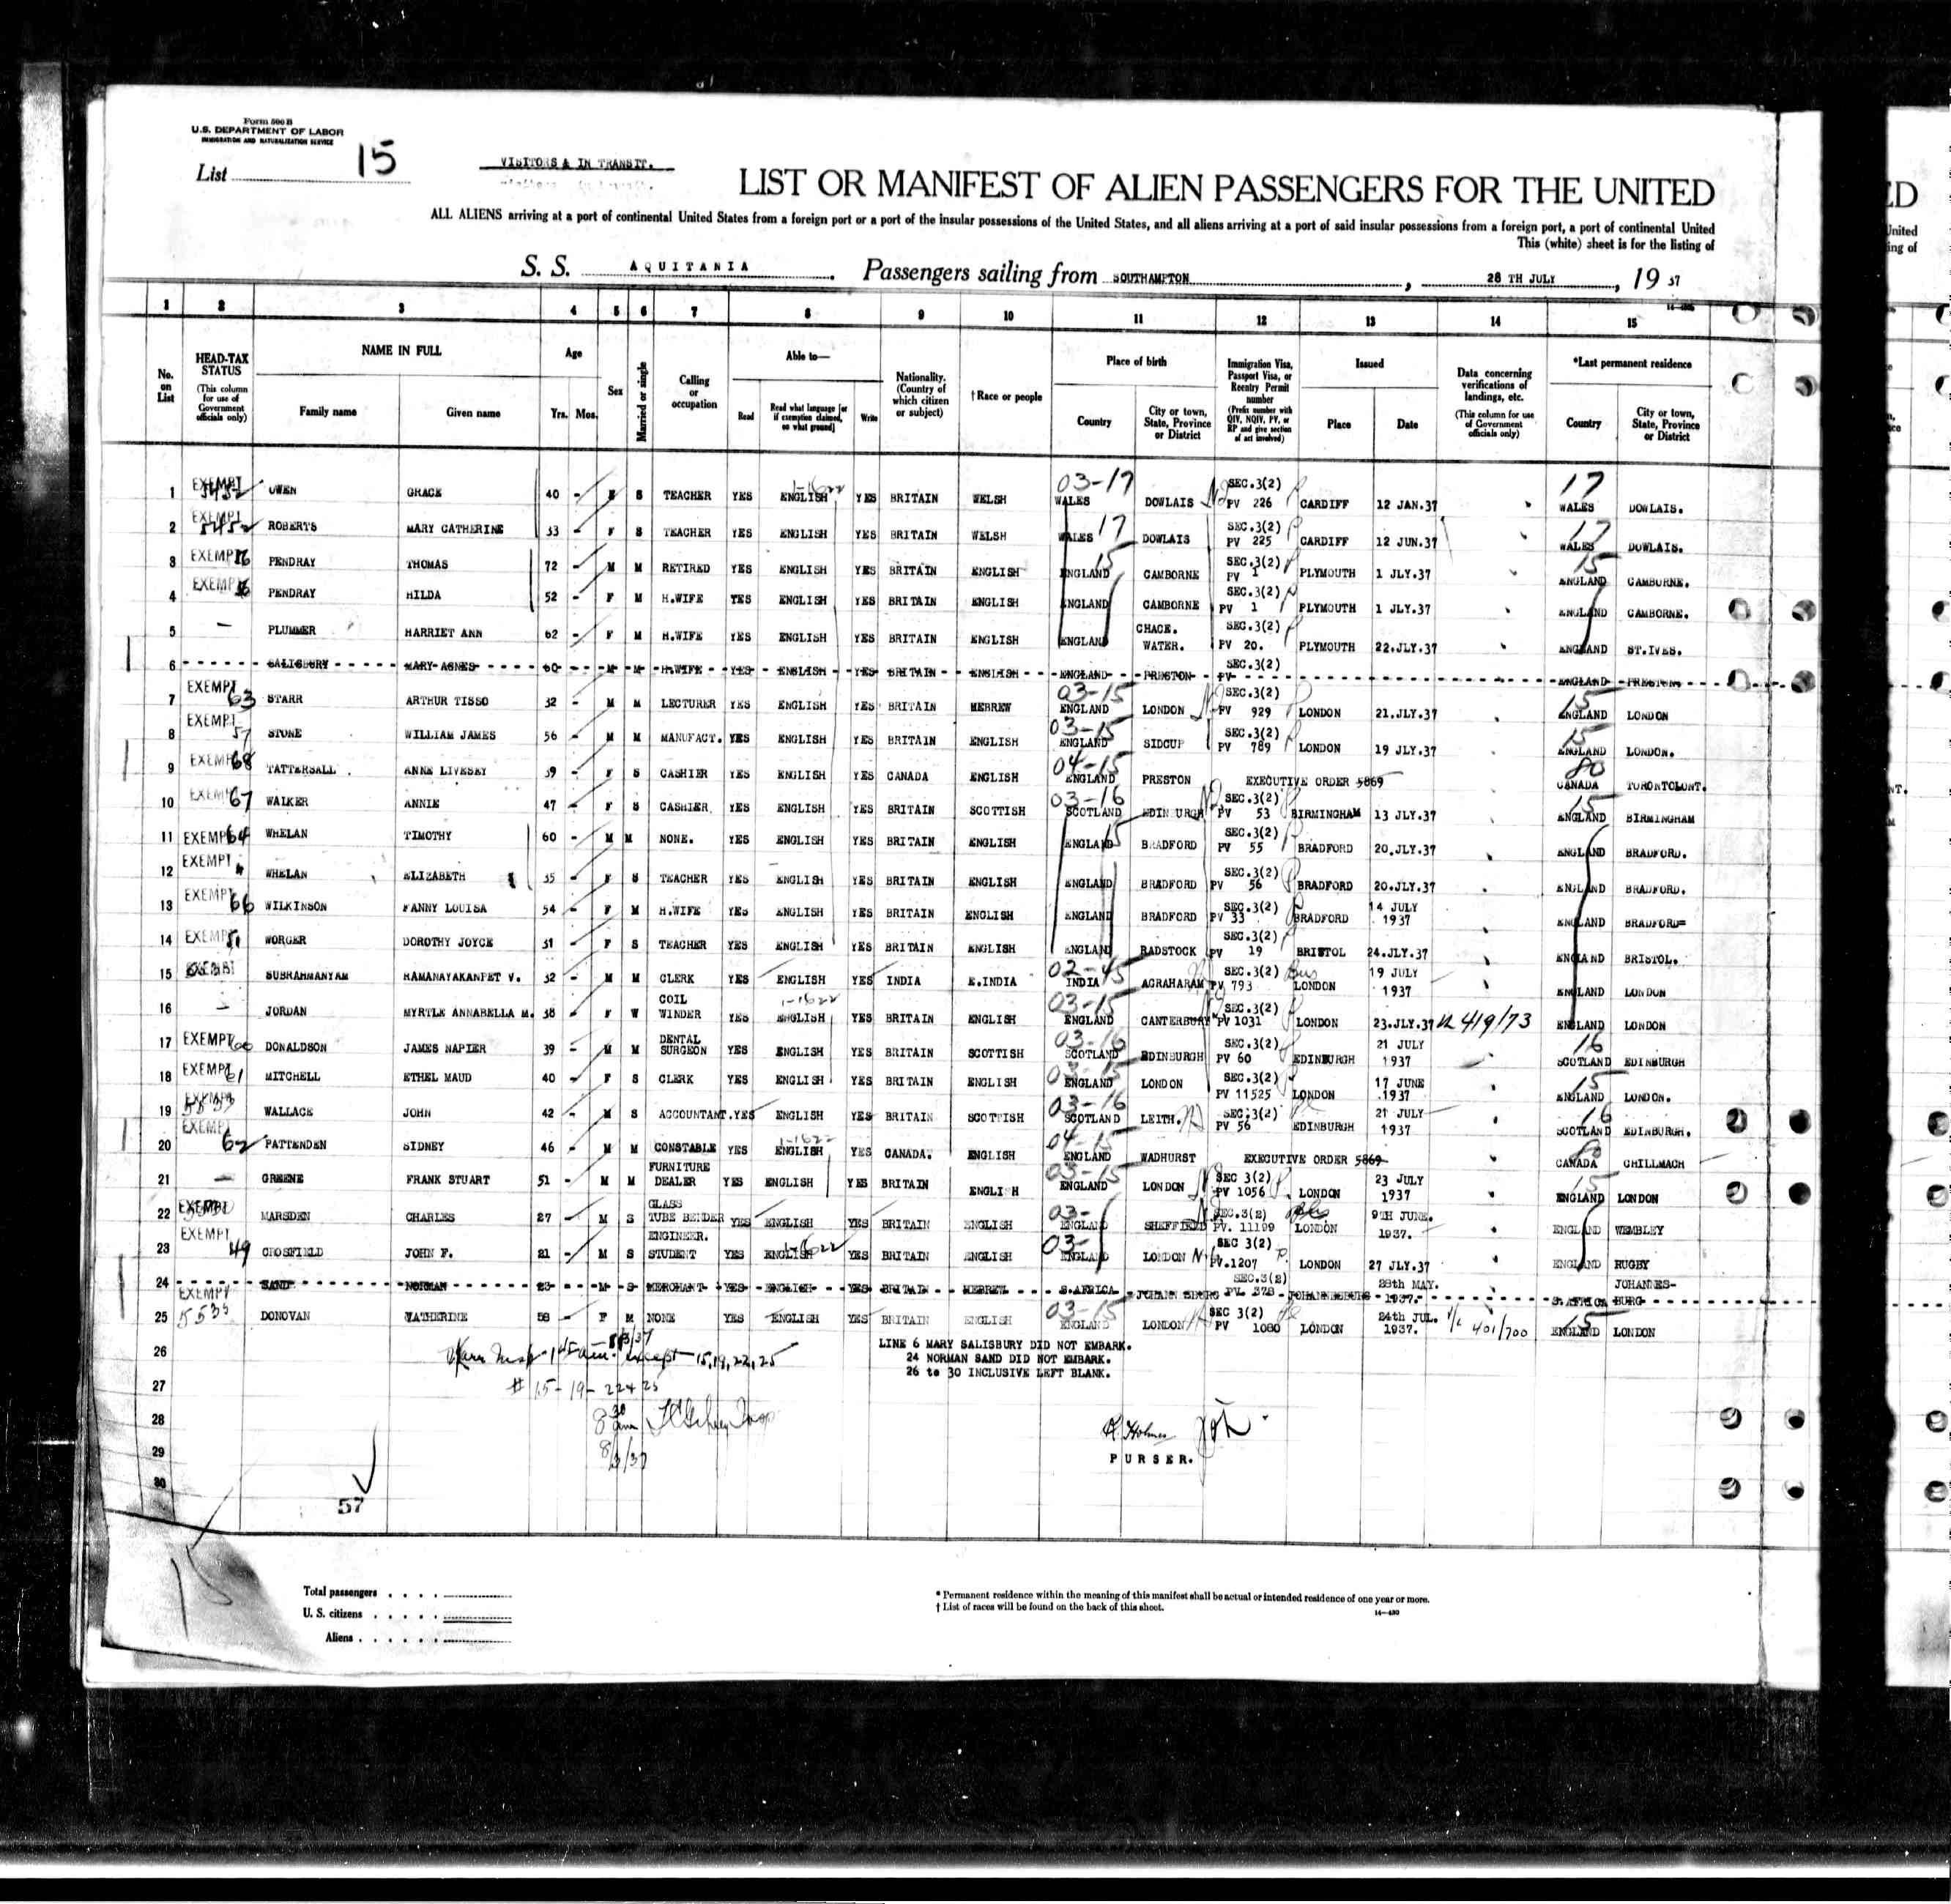 Form 500 B
U.S. DEPARTMENT OF LABOR
IMMIGRATION AND NATURALIZATION SERVICE
List 15
VISITORS & IN TRANSIT.
LIST OR MANIFEST OF ALIEN PASSENGERS FOR THE UNITED
ALL ALIENS arriving at a port of continental United States from a foreign port or a port of the insular possessions of the United States, and all aliens arriving at a port of said insular possessions from a foreign port, a port of continental United
This (white) sheet is for the listing of
S. S. AQUITANIA . Passengers sailing from SOUTHAMPTON , 28 TH JULY , 19 37
1 2 3 4 5 6 7 8 9 10 11 12 13 14 15
No. on List
HEAD-TAX STATUS (This column for use of Government officials only)
NAME IN FULL Family name Given name
Age Yrs. Mos.
Sex
Married or single
Calling or occupation
Able to— Read Read what language [or if exemption claimed, on what ground] Write
Nationality. (Country of which citizen or subject)
† Race or people
Place of birth Country City or town, State, Province or District
Immigration Visa, Passport Visa, or Reentry Permit number (Prefix number with QIV, NQIV, PV, or RP and give section of act involved)
Issued Place Date
Data concerning verifications of landings, etc. (This column for use of Government officials only)
*Last permanent residence Country City or town, State, Province or District
1 EXEMPT 5452 OWEN GRACE 40 - F S TEACHER YES ENGLISH YES BRITAIN WELSH 03-17 WALES DOWLAIS SEC.3(2) PV 226 CARDIFF 12 JAN.37 17 WALES DOWLAIS.
2 EXEMPT 5452 ROBERTS MARY CATHERINE 33 - F S TEACHER YES ENGLISH YES BRITAIN WELSH WALES 17 DOWLAIS SEC.3(2) PV 225 CARDIFF 12 JUN.37 17 WALES DOWLAIS.
3 EXEMPT PENDRAY THOMAS 72 - M M RETIRED YES ENGLISH YES BRITAIN ENGLISH 15 ENGLAND CAMBORNE SEC.3(2) PV 1 PLYMOUTH 1 JLY.37 15 ENGLAND CAMBORNE.
4 EXEMPT PENDRAY HILDA 52 - F M H.WIFE YES ENGLISH YES BRITAIN ENGLISH ENGLAND CAMBORNE SEC.3(2) PV 1 PLYMOUTH 1 JLY.37 ENGLAND CAMBORNE.
5 - PLUMMER HARRIET ANN 62 - F M H.WIFE YES ENGLISH YES BRITAIN ENGLISH ENGLAND CHACE. WATER. SEC.3(2) PV 20. PLYMOUTH 22.JLY.37 ENGLAND ST.IVES.
6 SALISBURY MARY AGNES 60 - M M H.WIFE YES ENGLISH YES BRITAIN ENGLISH ENGLAND PRESTON SEC.3(2) PV ENGLAND PRESTON
7 EXEMPT 63 STARR ARTHUR TISSO 32 - M M LECTURER YES ENGLISH YES BRITAIN HEBREW 03-15 ENGLAND LONDON SEC.3(2) PV 929 LONDON 21.JLY.37 15 ENGLAND LONDON
8 EXEMPT 57 STONE WILLIAM JAMES 56 - M M MANUFACT. YES ENGLISH YES BRITAIN ENGLISH 03-15 ENGLAND SIDCUP SEC.3(2) PV 789 LONDON 19 JLY.37 15 ENGLAND LONDON.
9 EXEMPT 68 TATTERSALL ANNE LIVESEY 39 - F S CASHIER YES ENGLISH YES CANADA ENGLISH 04-15 ENGLAND PRESTON EXECUTIVE ORDER 5869 80 CANADA TORONTOLONT.
10 EXEMPT 67 WALKER ANNIE 47 - F S CASHIER YES ENGLISH YES BRITAIN SCOTTISH 03-16 SCOTLAND EDINBURGH SEC.3(2) PV 53 BIRMINGHAM 13 JLY.37 15 ENGLAND BIRMINGHAM
11 EXEMPT 64 WHELAN TIMOTHY 60 - M M NONE. YES ENGLISH YES BRITAIN ENGLISH ENGLAND 15 BRADFORD SEC.3(2) PV 55 BRADFORD 20.JLY.37 ENGLAND BRADFORD.
12 EXEMPT WHELAN ELIZABETH 35 - F S TEACHER YES ENGLISH YES BRITAIN ENGLISH ENGLAND BRADFORD SEC.3(2) PV 56 BRADFORD 20.JLY.37 ENGLAND BRADFORD.
13 EXEMPT 66 WILKINSON FANNY LOUISA 54 - F M H.WIFE YES ENGLISH YES BRITAIN ENGLISH ENGLAND BRADFORD SEC.3(2) PV 33 BRADFORD 14 JULY 1937 ENGLAND BRADFORD=
14 EXEMPT WORGER DOROTHY JOYCE 31 - F S TEACHER YES ENGLISH YES BRITAIN ENGLISH ENGLAND RADSTOCK SEC.3(2) PV 19 BRISTOL 24.JLY.37 ENGLAND BRISTOL.
15 SUBRAHMANYAM RAMANAYAKANPET V. 32 - M M CLERK YES ENGLISH YES INDIA E.INDIA 02-45 INDIA AGRAHARAM SEC.3(2) PV 793 LONDON 19 JULY 1937 ENGLAND LONDON
16 - JORDAN MYRTLE ANNABELLA M. 38 - F W COIL WINDER YES 1-1622 ENGLISH YES BRITAIN ENGLISH 03-15 ENGLAND CANTERBURY SEC.3(2) PV 1031 LONDON 23.JLY.37 419/73 ENGLAND LONDON
17 EXEMPT 60 DONALDSON JAMES NAPIER 39 - M M DENTAL SURGEON YES ENGLISH YES BRITAIN SCOTTISH 03-16 SCOTLAND EDINBURGH SEC.3(2) PV 60 EDINBURGH 21 JULY 1937 16 SCOTLAND EDINBURGH
18 EXEMPT 61 MITCHELL ETHEL MAUD 40 - F S CLERK YES ENGLISH YES BRITAIN ENGLISH 03-15 ENGLAND LONDON SEC.3(2) PV 11525 LONDON 17 JUNE 1937 15 ENGLAND LONDON.
19 EXEMPT WALLACE JOHN 42 - M S ACCOUNTANT. YES ENGLISH YES BRITAIN SCOTTISH 03-16 SCOTLAND LEITH. SEC;3(2) PV 56 EDINBURGH 21 JULY 1937 16 SCOTLAND EDINBURGH.
20 EXEMPT 62 PATTENDEN SIDNEY 46 - M M CONSTABLE YES 1-1622 ENGLISH YES CANADA. ENGLISH 04-15 ENGLAND WADHURST EXECUTIVE ORDER 5869 80 CANADA CHILLMACH
21 - GREENE FRANK STUART 51 - M M FURNITURE DEALER YES ENGLISH YES BRITAIN ENGLISH 03-15 ENGLAND LONDON SEC 3(2) PV 1056 LONDON 23 JULY 1937 15 ENGLAND LONDON
22 EXEMPT MARSDEN CHARLES 27 - M S GLASS TUBE BENDER YES ENGLISH YES BRITAIN ENGLISH 03- ENGLAND SHEFFIELD SEC.3(2) PV. 11199 LONDON 9TH JUNE. 1937. ENGLAND WEMBLEY
23 EXEMPT 49 CROSFIELD JOHN F. 21 - M S ENGINEER. STUDENT YES 1-1622 ENGLISH YES BRITAIN ENGLISH 03- ENGLAND LONDON SEC 3(2) PV.1207 LONDON 27 JLY.37 ENGLAND RUGBY
24 SAND NORMAN 23 - M S MERCHANT YES ENGLISH YES BRITAIN HEBREW S.AFRICA JOHANNESBURG SEC.3(2) PV. 378 JOHANNESBURG 28th MAY. 1937. S.AFRICA JOHANNES-BURG
25 EXEMPT 5535 DONOVAN KATHERINE 58 - F M NONE YES ENGLISH YES BRITAIN ENGLISH 03-15 ENGLAND LONDON SEC 3(2) PV 1080 LONDON 24th JUL. 1937. 401/700 15 ENGLAND LONDON
26 except 15,19,22,25 LINE 6 MARY SALISBURY DID NOT EMBARK.
24 NORMAN SAND DID NOT EMBARK.
26 to 30 INCLUSIVE LEFT BLANK.
27 # 15-19-22 & 25
28 8 30 am
R Holmes
29 8/3/37 PURSER.
30
57
15
Total passengers
U. S. citizens
Aliens
* Permanent residence within the meaning of this manifest shall be actual or intended residence of one year or more.
† List of races will be found on the back of this sheet.
14—430